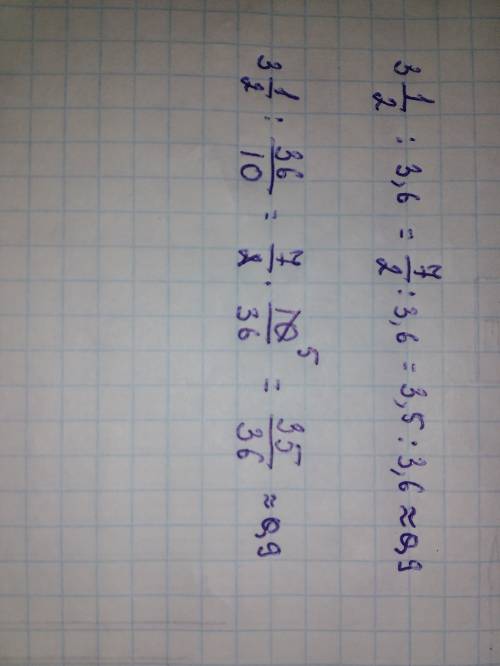 3 1/2 : 3,6 = 7/2 : 3,6 = 3,5 : 3,6 ≈ 0,9
3 1/2 : 36/10 = 7/2 · 10/36 5 = 35/36 ≈ 0,9